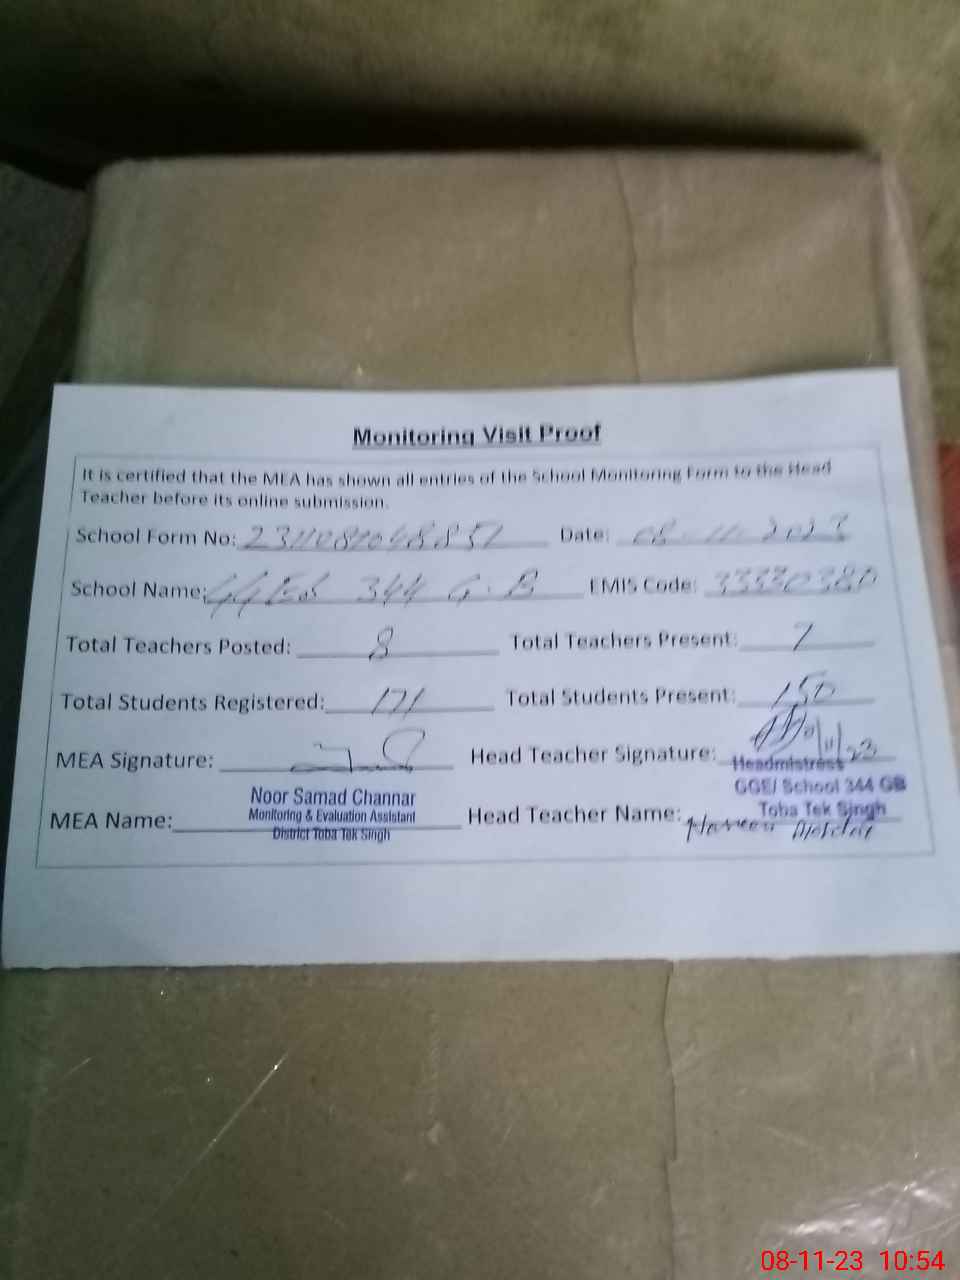 Monitoring Visit Proof
It is certified that the MEA has shown all entries of the School Monitoring Form to the Head
Teacher before its online submission.
School Form No: 2311081048851 Date: 08-11-2023
School Name: GGES 344 G.B EMIS Code: 33330380
Total Teachers Posted: 8 Total Teachers Present: 7
Total Students Registered: 171 Total Students Present: 150
MEA Signature: Head Teacher Signature: 8/11/23
Headmistress
GGE/ School 344 GB
Toba Tek Singh
MEA Name: Noor Samad Channar
Monitoring & Evaluation Assistant
District Toba Tek Singh
Head Teacher Name:
08-11-23 10:54